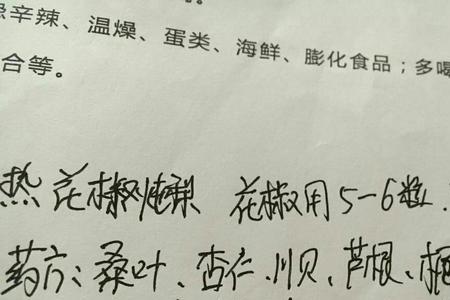 辛辣、温燥、蛋类、海鲜、膨化食品；多喝
合等。
热 花椒炖梨 花椒用5-6粒.
药方：桑叶、杏仁、川贝、芦根、